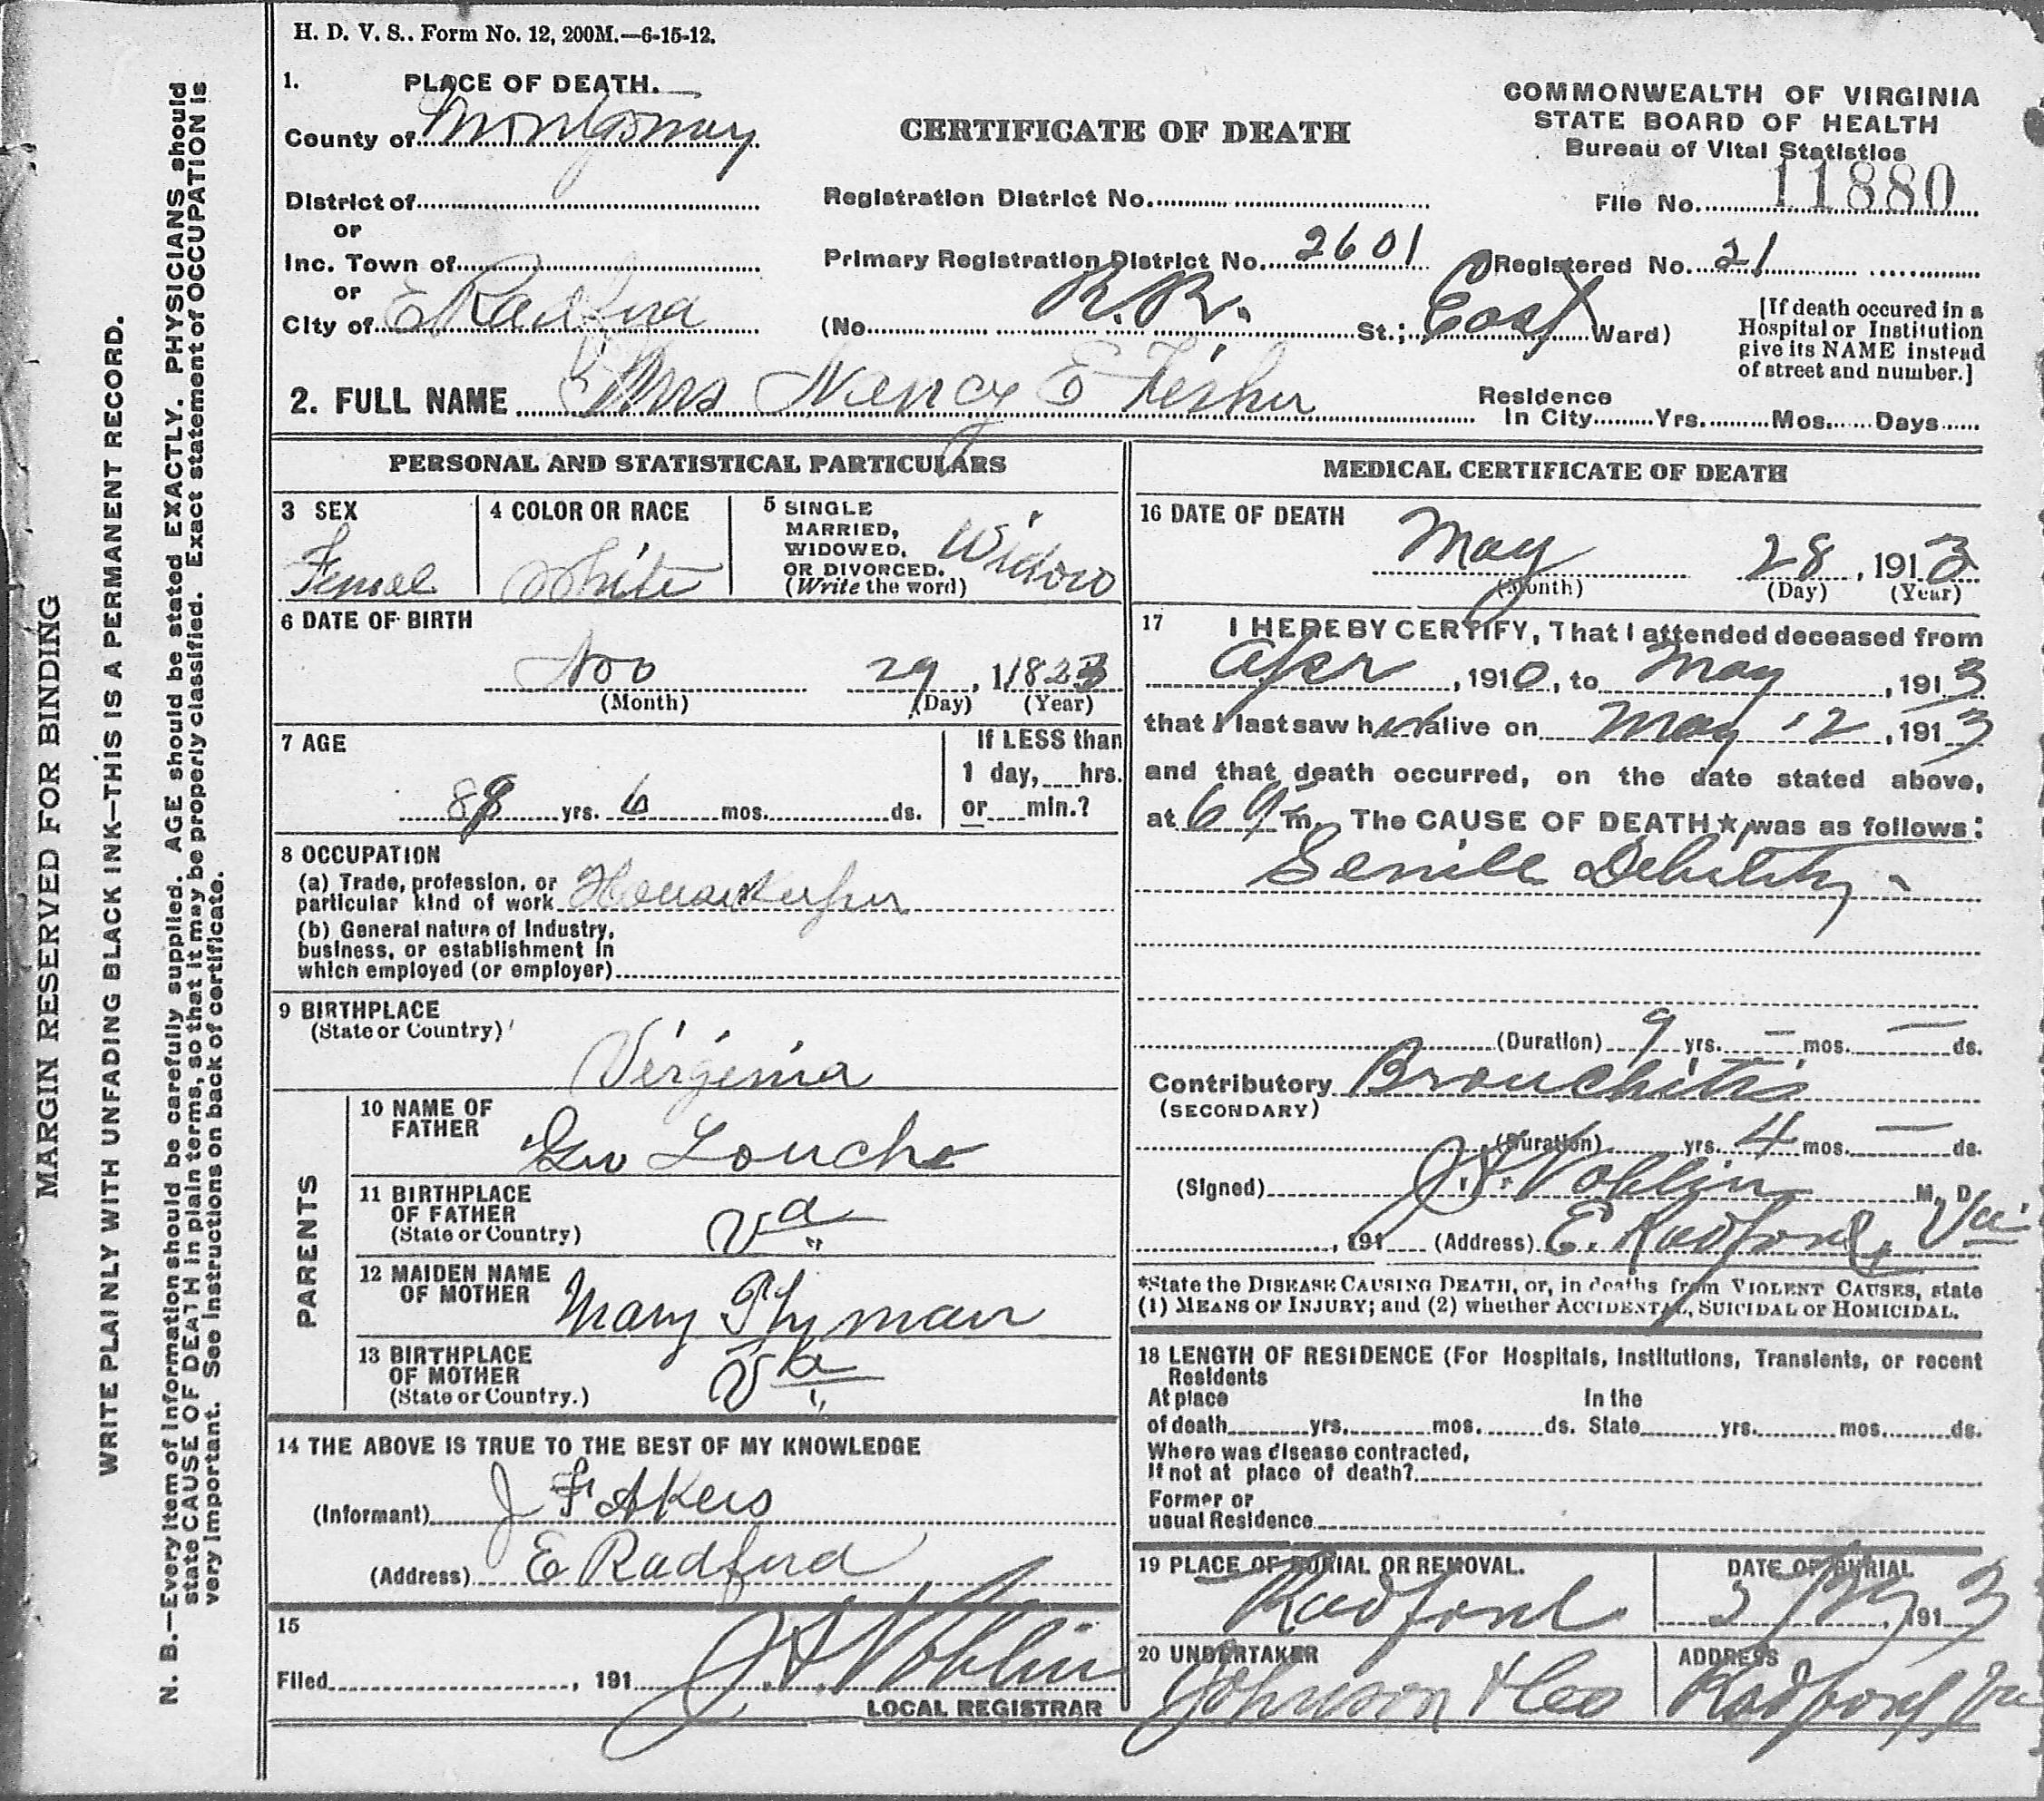 H. D. V. S.. Form No. 12, 200M.—6-15-12.
MARGIN RESERVED FOR BINDING
WRITE PLAINLY WITH UNFADING BLACK INK—THIS IS A PERMANENT RECORD.
N. B.—Every item of Information should be carefully supplied. AGE should be stated EXACTLY. PHYSICIANS should
state CAUSE OF DEATH in plain terms, so that it may be properly classified. Exact statement of OCCUPATION is
very important. See instructions on back of certificate.
1. PLACE OF DEATH.
County of Montgomery
District of
or
Inc. Town of
or
City of E Radford
CERTIFICATE OF DEATH
COMMONWEALTH OF VIRGINIA
STATE BOARD OF HEALTH
Bureau of Vital Statistics
Registration District No.
File No. 11880
Primary Registration District No. 2601
Registered No. 21
(No. R.R. St.; East Ward)
[If death occured in a
Hospital or Institution
give its NAME instead
of street and number.]
2. FULL NAME Mrs Nancy E Fisher
Residence
In City Yrs. Mos. Days
PERSONAL AND STATISTICAL PARTICULARS
3 SEX
Femal
4 COLOR OR RACE
White
5 SINGLE
MARRIED,
WIDOWED,
OR DIVORCED.
(Write the word)
Widow
6 DATE OF BIRTH
Nov 29, 1823
(Month) (Day) (Year)
7 AGE
89 yrs. 6 mos. ds.
If LESS than
1 day, hrs.
or min.?
8 OCCUPATION
(a) Trade, profession, or
particular kind of work Housekeeper
(b) General nature of Industry,
business, or establishment in
which employed (or employer)
9 BIRTHPLACE
(State or Country)
Virginia
PARENTS
10 NAME OF
FATHER
Geo
11 BIRTHPLACE
OF FATHER
(State or Country)
Va
12 MAIDEN NAME
OF MOTHER
Mary
13 BIRTHPLACE
OF MOTHER
(State or Country.)
Va
14 THE ABOVE IS TRUE TO THE BEST OF MY KNOWLEDGE
(Informant) J F Akers
(Address) E Radford
15
Filed , 191
LOCAL REGISTRAR
MEDICAL CERTIFICATE OF DEATH
16 DATE OF DEATH
May 28, 1913
(Month) (Day) (Year)
17 I HEREBY CERTIFY, That I attended deceased from
Apr, 1910, to May, 1913
that I last saw her alive on May 12, 1913
and that death occurred, on the date stated above,
at 6 m. The CAUSE OF DEATH★ was as follows:
Senile Debility
(Duration) 9 yrs. — mos. — ds.
Contributory Bronchitis
(SECONDARY)
(Duration) yrs. 4 mos. — ds.
(Signed) M. D.
, 191 (Address) E. Radford, Va
*State the DISEASE CAUSING DEATH, or, in deaths from VIOLENT CAUSES, state
(1) MEANS OF INJURY; and (2) whether ACCIDENTAL, SUICIDAL or HOMICIDAL.
18 LENGTH OF RESIDENCE (For Hospitals, Institutions, Transients, or recent
Residents
At place In the
of death yrs. mos. ds. State yrs. mos. ds.
Where was disease contracted,
If not at place of death?
Former or
usual Residence
19 PLACE OF BURIAL OR REMOVAL.
Radford
DATE OF BURIAL
1913
20 UNDERTAKER
Johnson & Co
ADDRESS
Radford Va